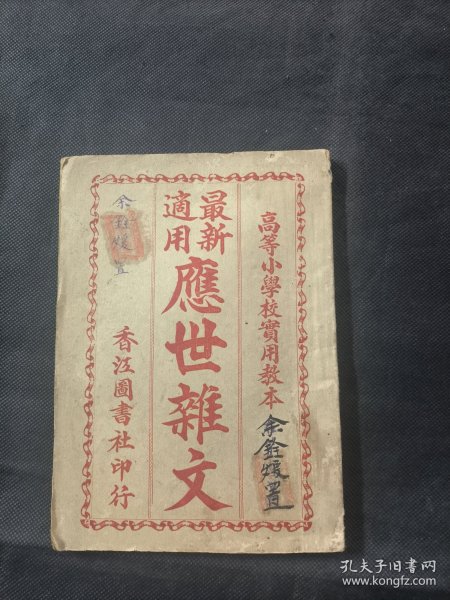 高等小學校實用教本
余鈺媛置
最新
適用
應世雜文
香江圖書社印行
余鈺媛置
孔夫子旧书网
www.kongfz.com